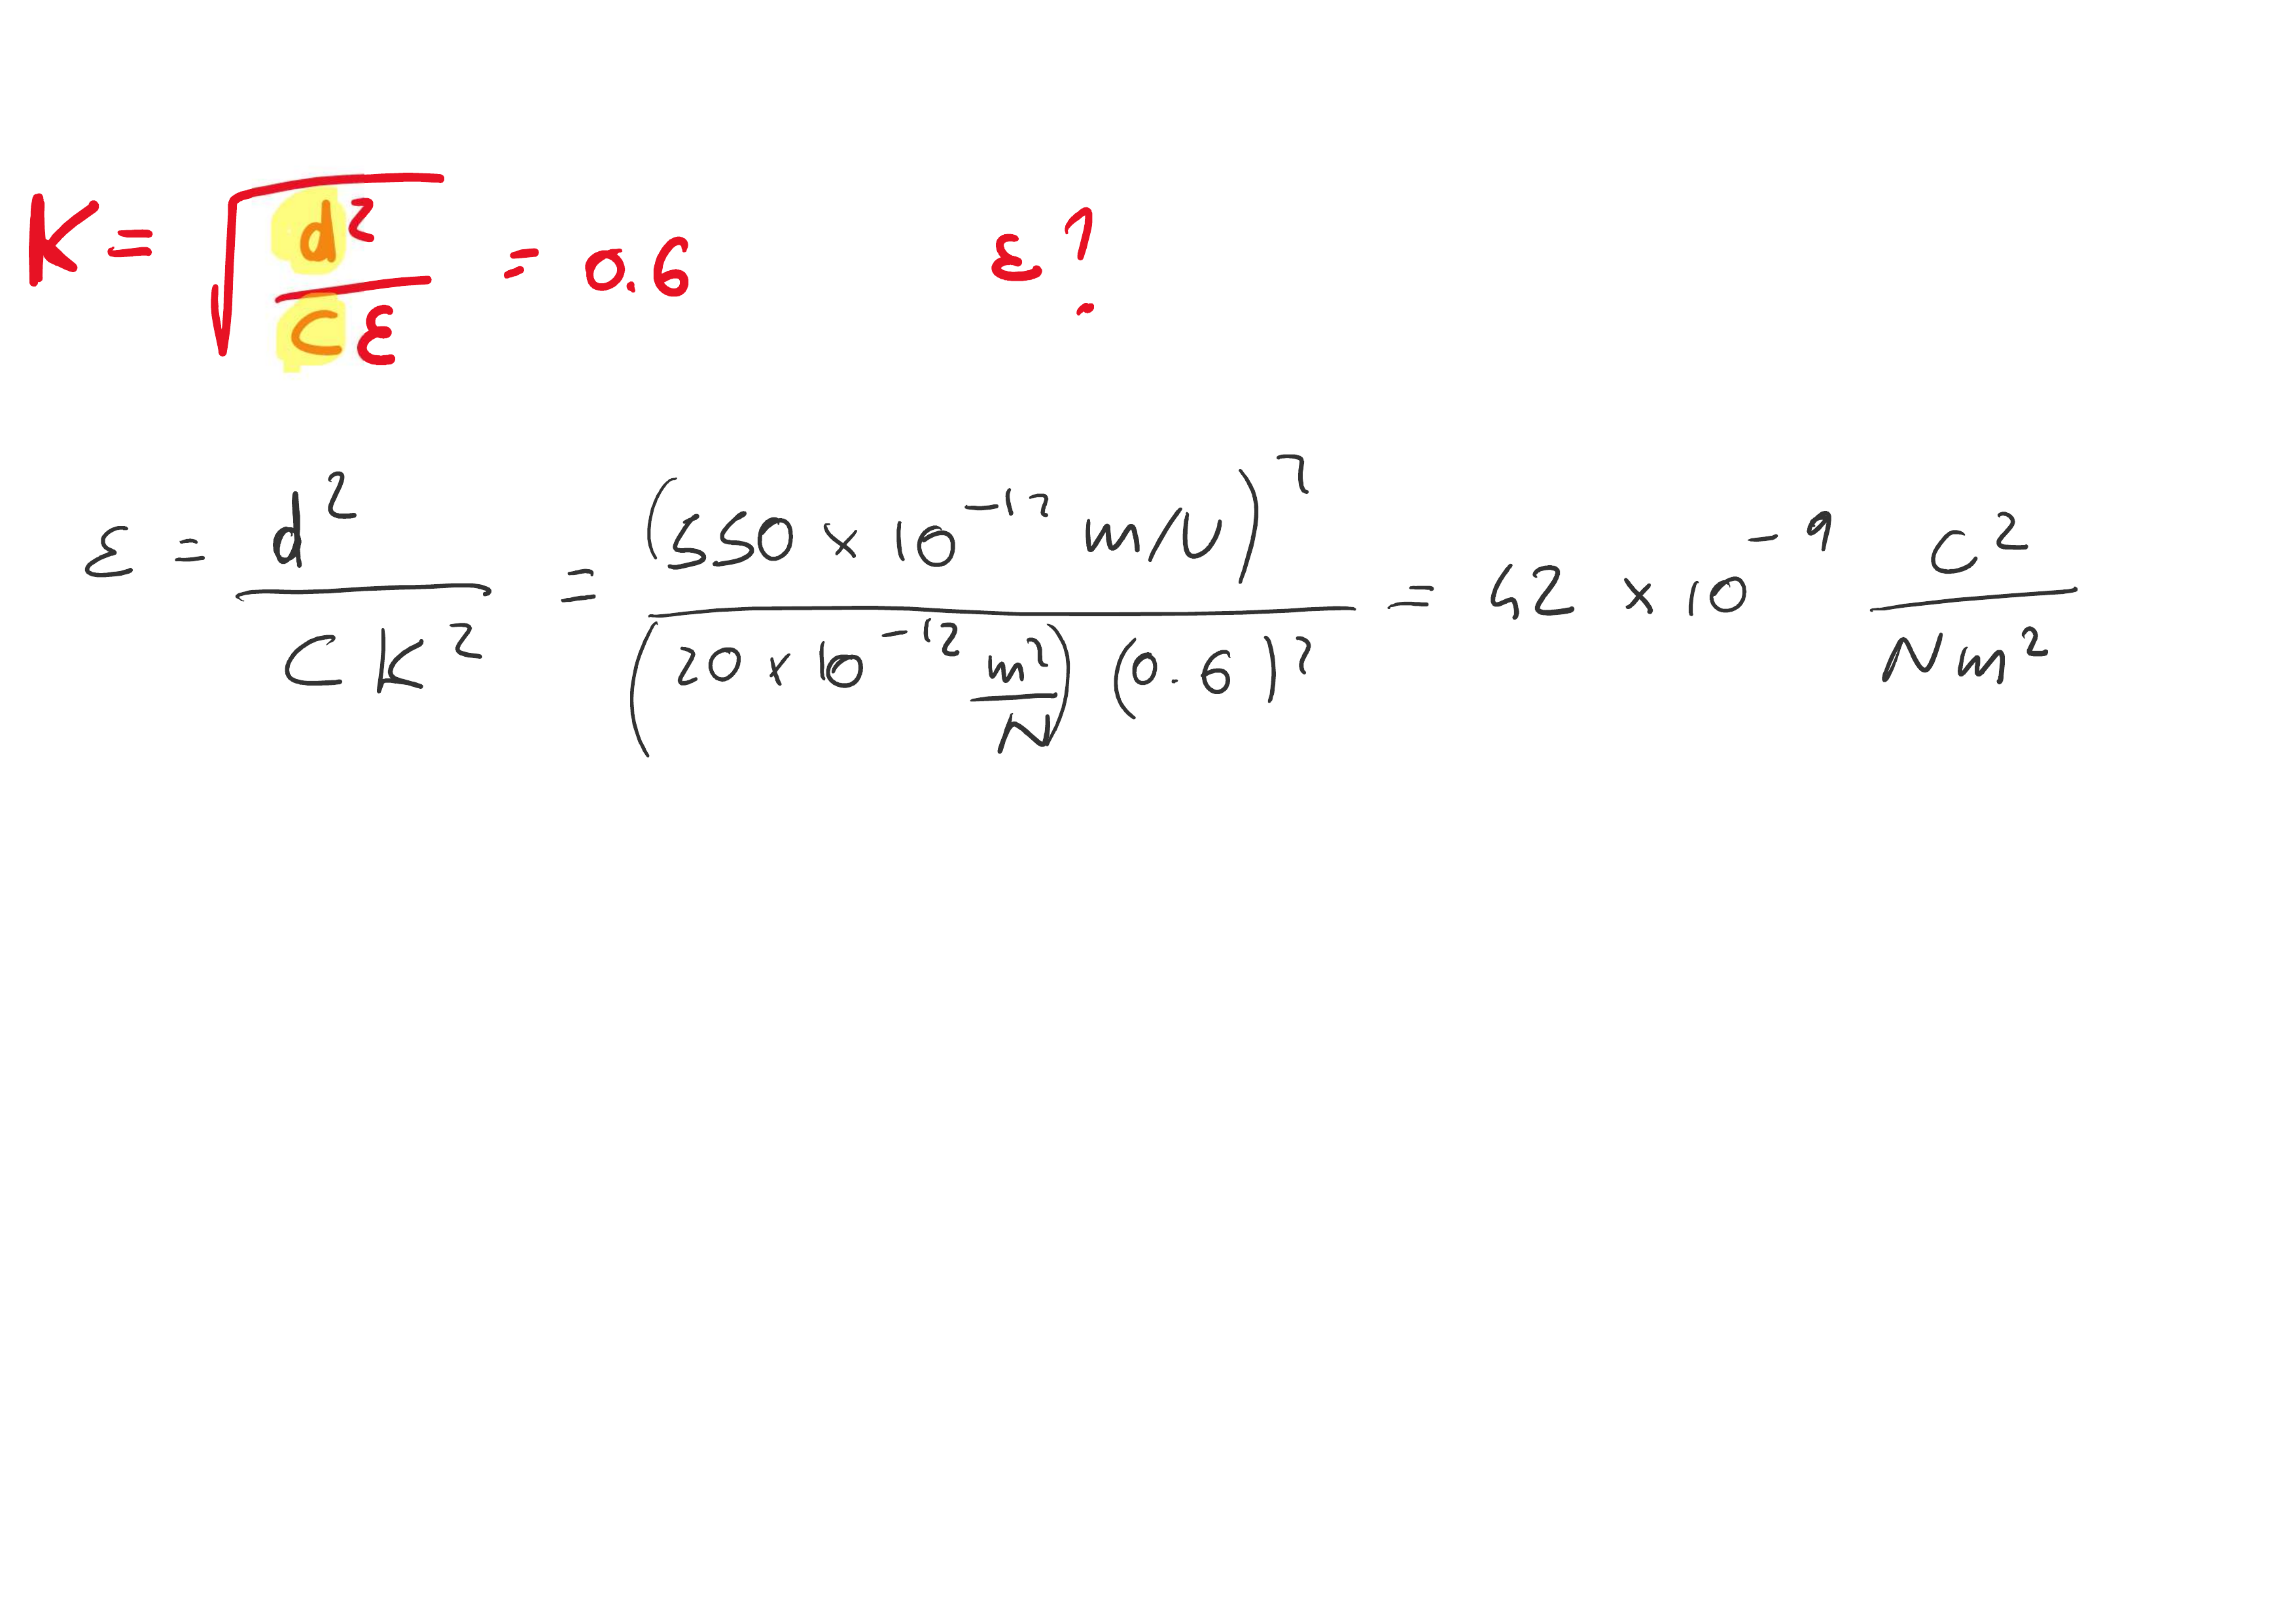 K = √(d²/(cε)) = 0.6 ε?
ε = d²/(CK²) = (550 × 10⁻¹² m/N)²/((20 × 10⁻¹² m²/N)(0.6)²) = 42 × 10⁻⁹ C²/(Nm²)